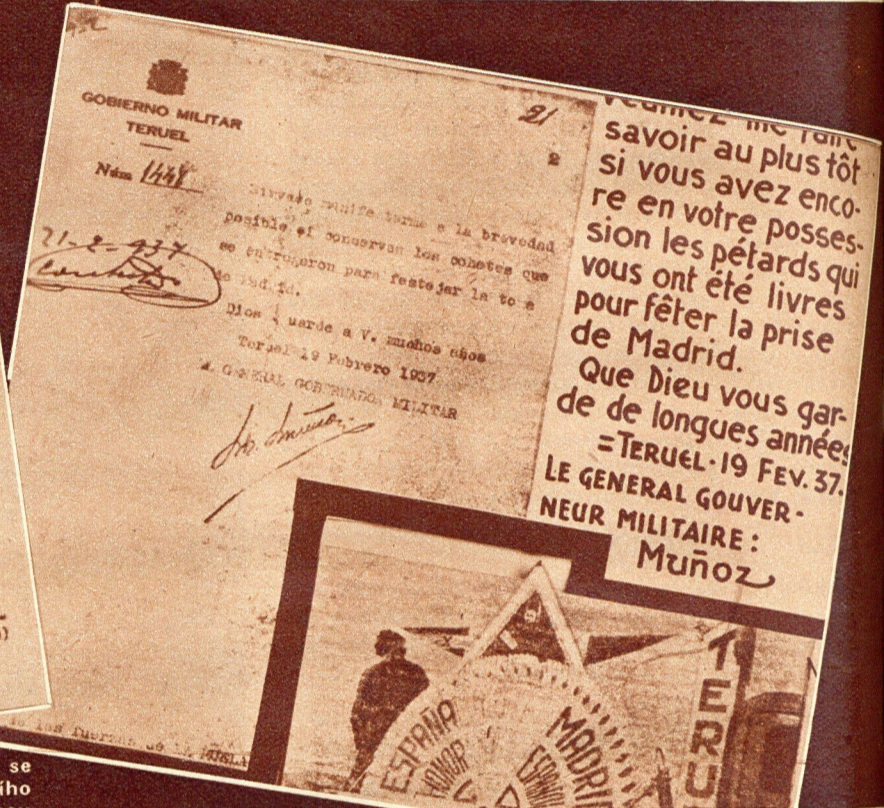 GOBIERNO MILITAR
TERUEL
Núm 1448
21
2
Sirvase manifestarme a la brevedad
posible si conservan los cohetes que
se entregaron para festejar la to a
de Madrid.
Dios uarde a V. muchos años
Teruel 19 Febrero 1937
GENERAL GOBERNADO MILITAR
21-2-937
veuillez me faire
savoir au plus tôt
si vous avez enco-
re en votre posses-
sion les pétards qui
vous ont été livres
pour fêter la prise
de Madrid.
Que Dieu vous gar-
de de longues années
=TERUEL·19 FEV. 37.
LE GENERAL GOUVER-
NEUR MILITAIRE:
Muñoz
ESPAÑA
HONOR
MADRI
ESPAÑOL
TERU
las fuerzas de
se
iho